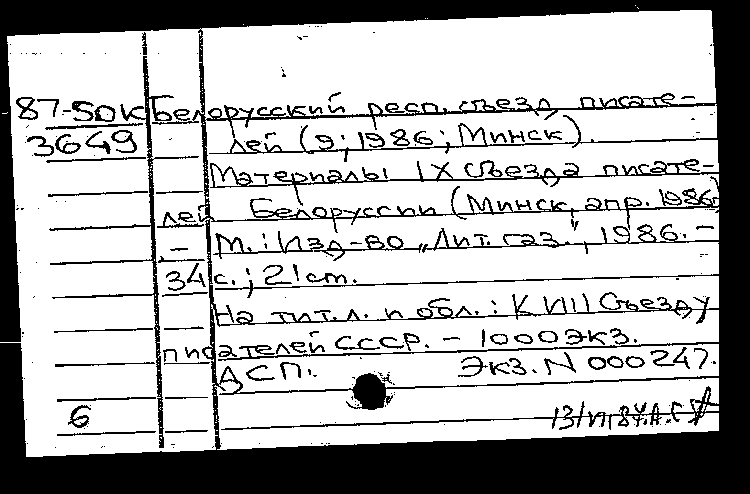 87-50К Белорусский респ. съезд писате-
3649 лей (9; 1986; Минск).
Материалы IX съезда писате-
лей Белоруссии (Минск, апр. 1986)
.– М.: Изд-во „Лит. газ.", 1986. –
34 с.; 21 cm.
На тит. л. и обл.: К VIII Съезду
писателей СССР. – 1000 экз.
ДСП. Экз. N 000247.
6